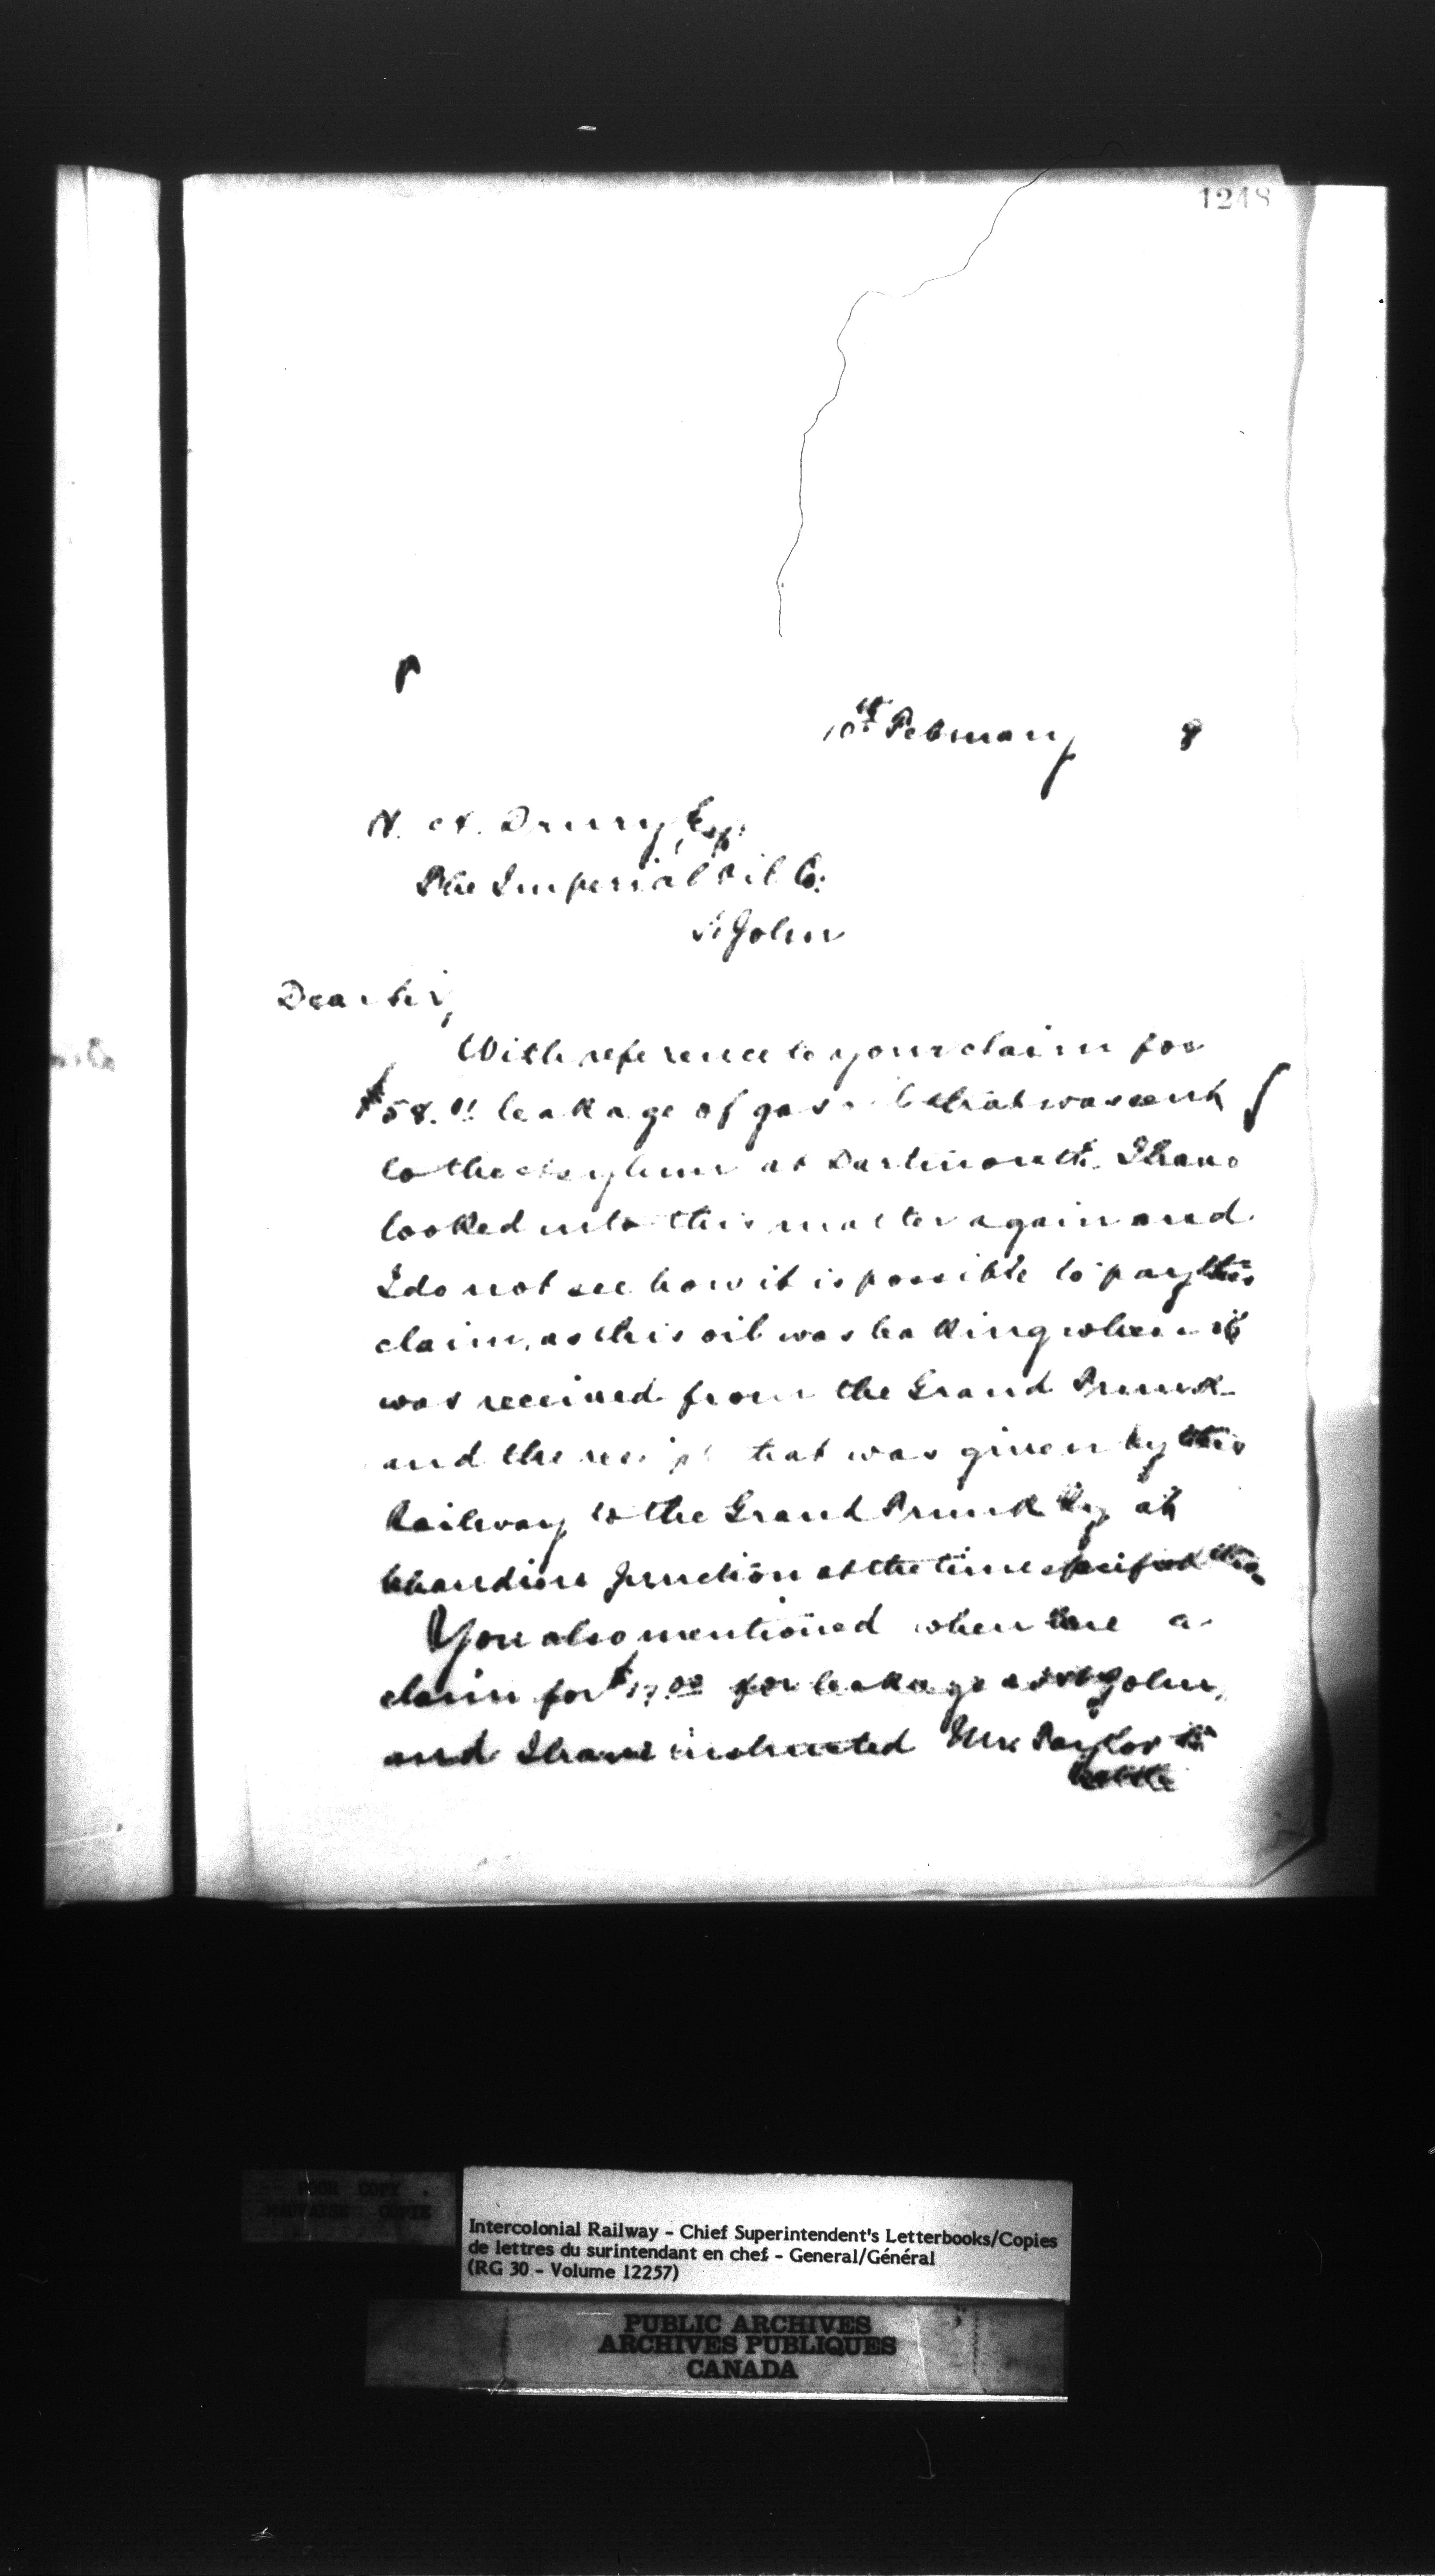 1248
P
10th February 8
N. A. Drury, Esq.
The Imperial Oil Co:
St John
Dear Sir,
With reference to your claim for
leakage of gas oil that was sent
to the Asylum at Dartmouth. I have
looked into this matter again and
I do not see how it is possible to pay this
claim, as this oil was leaking when it
was received from the Grand Trunk
and the receipt that was given by this
Railway to the Grand Trunk Ry at
Chaudiere Junction at the time specified this
You also mentioned when here a
claim for $17.00 for leakage at St John,
and I have instructed Mr. Taylor to
settle
POOR COPY
MAUVAISE COPIE
Intercolonial Railway - Chief Superintendent's Letterbooks/Copies
de lettres du surintendant en chef - General/Général
(RG 30 - Volume 12257)
PUBLIC ARCHIVES
ARCHIVES PUBLIQUES
CANADA